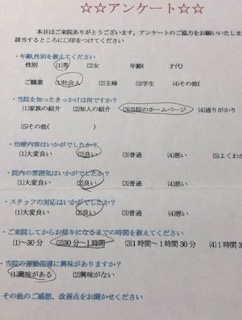 ☆☆アンケート☆☆
本日はご来院ありがとうございます。アンケートのご協力をお願いいたしま
該当するところに○印をつけてください
・年齢,性別を教えてください
性別 (1)男 (2)女 年齢( 才代)
ご職業 (1)社会人 (2)主婦 (3)学生 (4)その他(
・当院を知ったきっかけは何ですか?
(1)家族の紹介 (2)知人の紹介 (3)当院のホームページ (4)通りがかり
(5)その他( )
・治療内容はいかがでしたか?
(1)大変良い (2)良い (3)普通 (4)悪い (5)よくわ
・院内の雰囲気はいかがでしたか?
(1)大変良い (2)良い (3)普通 (4)悪い
・スタッフの対応はいかがでしたか?
(1)大変良い (2)良い (3)普通 (4)悪い
・ご来院してからお帰りになるまでの時間を教えてください
(1)～30分 (2)30分～1時間 (3)1時間～1時間30分 (4)1時間
・当院の運動指導に興味がありますか?
(1)興味がある (2)興味がない
その他のご感想、改善点をお聞かせください